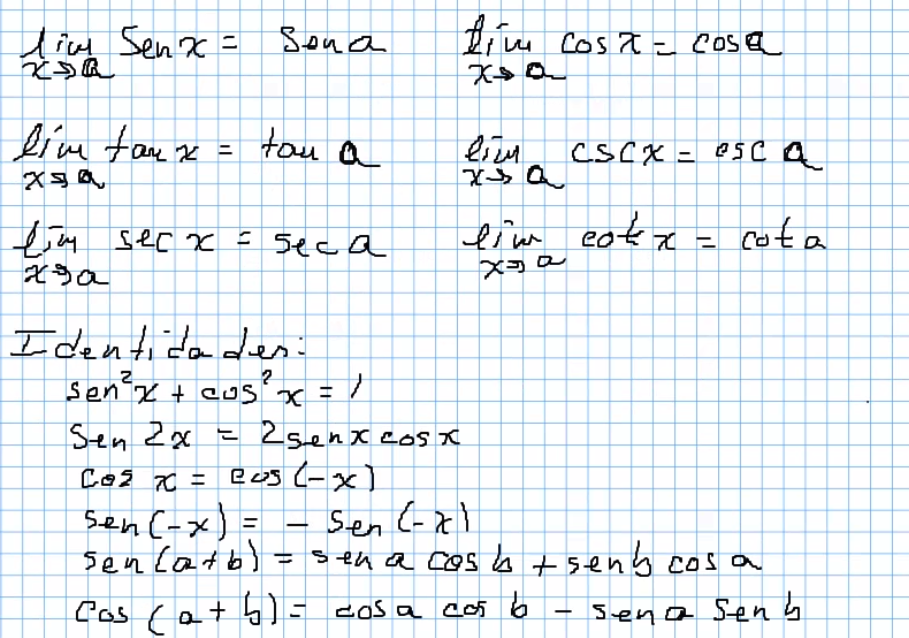 lim x→a Sen x = Sen a    lim x→a cos x = cos a
lim x→a tan x = tan a    lim x→a csc x = csc a
lim x→a sec x = sec a    lim x→a cot x = cot a
Identidades:
sen²x + cos²x = 1
Sen 2x = 2senx cosx
Cos x = cos(-x)
sen(-x) = - sen(-x)
sen(a+b) = sen a cos b + sen b cos a
Cos (a+b) = cos a cos b - sen a sen b